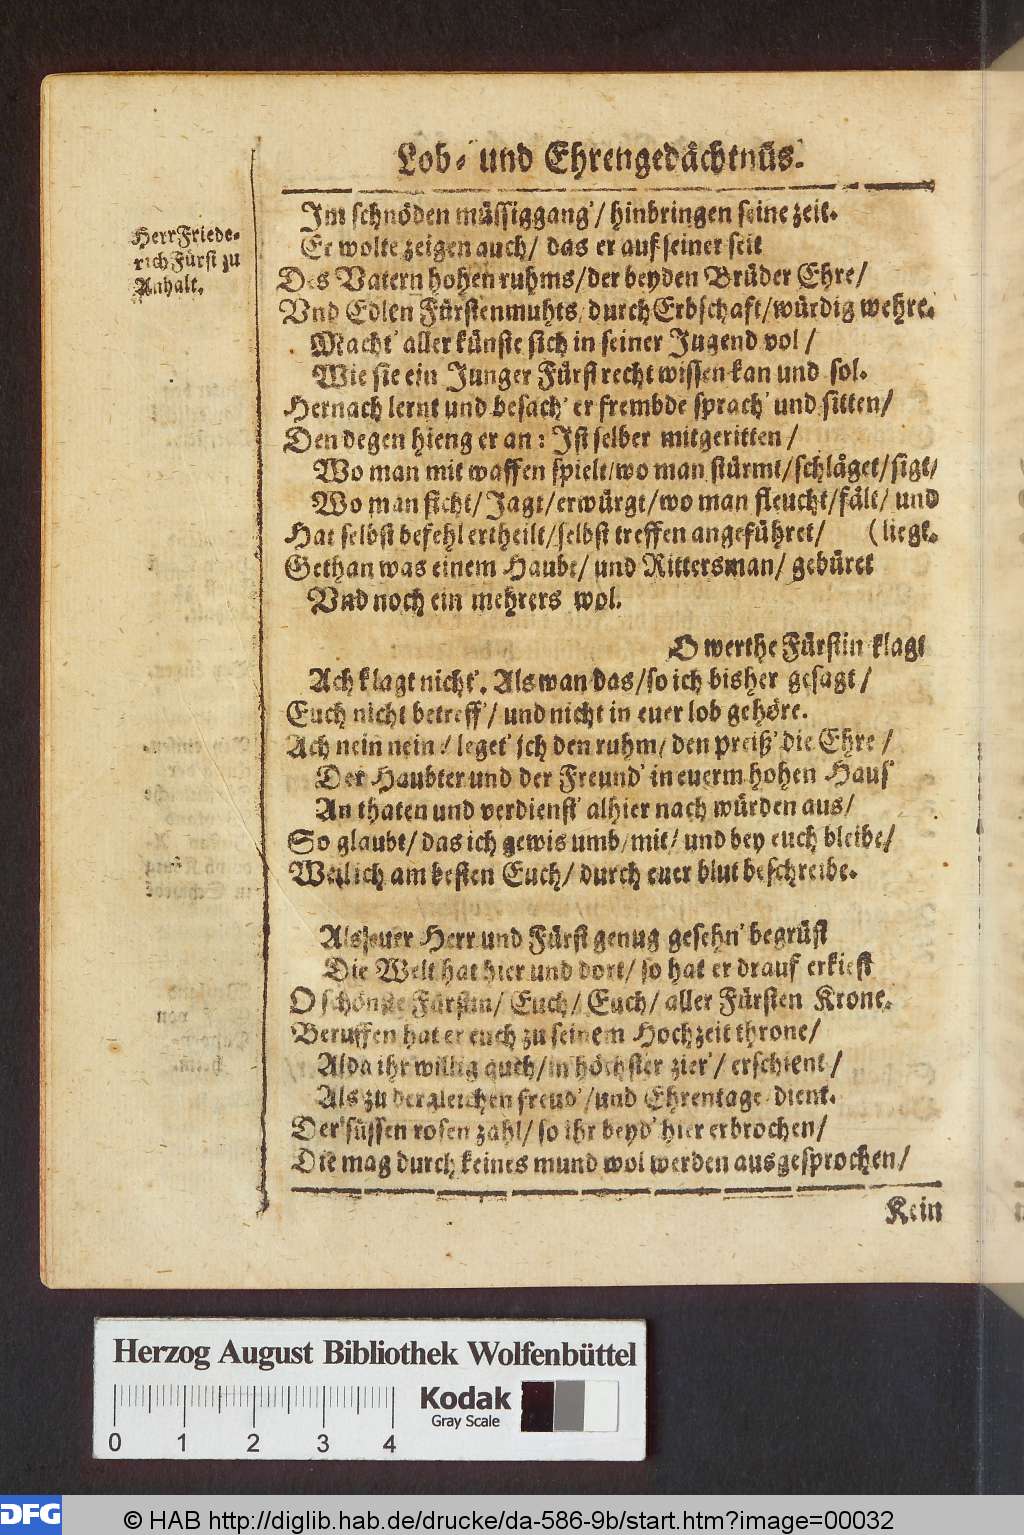 Lob- und Ehrengedächtnüs.
Im schnöden müssiggang'/ hinbringen seine zeit.
Er wolte zeigen auch/ das er auf seiner seit
Herr Friede-
rich Fürst zu
Anhalt.
Des Vatern hohen ruhms/der beyden Brüder Ehre/
Vnd Edlen Fürstenmuhts/durch Erbschaft/würdig wehre.
Macht' aller künste sich in seiner Jugend vol/
Wie sie ein Junger Fürst recht wissen kan und sol.
Hernach lernt und besach' er frembde sprach' und sitten/
Den degen hieng er an: Ist selber mitgeritten/
Wo man mit waffen spielt/wo man stürmt/schläget/sigt/
Wo man ficht/Jagt/erwürgt/wo man fleucht/fält/ und
Hat selbst befehl ertheilt/selbst treffen angeführet/ (liegt.
Gethan was einem Haubt/ und Rittersman/ gebüret
Vnd noch ein mehrers wol.
O werthe Fürstin klagt
Ach klagt nicht'. Als wan das/so ich bisher gesagt/
Euch nicht betreff'/ und nicht in euer lob gehöre.
Ach nein nein/ leget' ich den ruhm/ den preiß' die Ehre/
Der Haubter und der Freund' in euerm hohen Haus'
An thaten und verdienst' alhier nach würden aus/
So glaubt/ das ich gewis umb/mit/ und bey euch bleibe/
Weil ich am besten Euch/ durch euer blut beschreibe.
Als euer Herr und Fürst genug gesehn' begrüst
Die Welt hat hier und dort/ so hat er drauf erkiest
O schönste Fürstin/ Euch/ Euch/ aller Fürsten Krone.
Beruffen hat er euch zu seinem Hochzeit throne/
Alda ihr willig auch/in höchster zier'/ erschient/
Als zu dergleichen freud'/und Ehrentage/dient.
Der süssen rosen zahl/ so ihr beyd' hier erbrochen/
Die mag durch keines mund wol werden ausgesprochen/
Kein
Herzog August Bibliothek Wolfenbüttel
Kodak
Gray Scale
0 1 2 3 4
DFG © HAB http://diglib.hab.de/drucke/da-586-9b/start.htm?image=00032